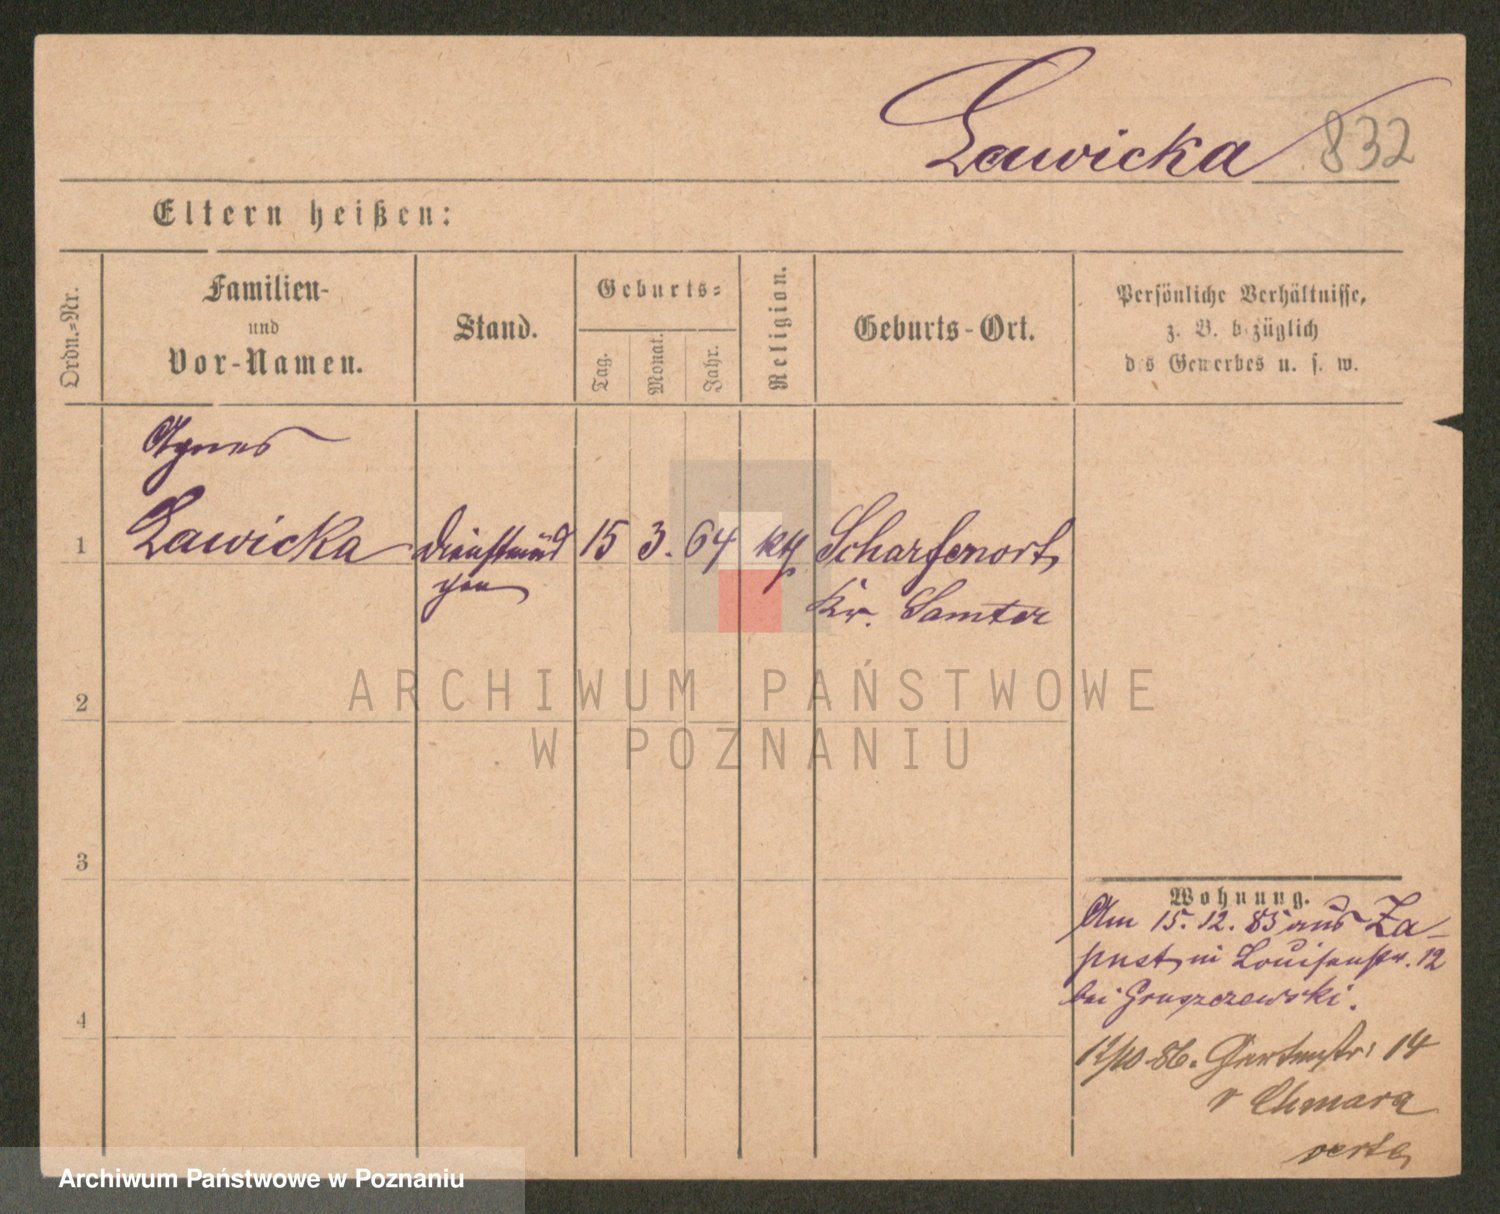 Lawicka 832
Eltern heißen:
Ordn.-Nr.
Familien-
und
Vor-Namen.
Stand.
Geburts-
Tag.
Monat.
Jahr.
Religion.
Geburts-Ort.
Persönliche Verhältnisse,
z. B. bezüglich
des Gewerbes u. s. w.
Agnes
1 Lawicka Dienstmäd 15 3. 64 kth Scharfenort,
chen Kr. Samter
ARCHIWUM PAŃSTWOWE
W POZNANIU
2
3
4
Wohnung.
Am 15. 12. 85 aus Za-
pust, in Louisenstr. 12
bei Gruszczewski.
12/10 86. Gartenstr: 14
Chmara
verte
Archiwum Państwowe w Poznaniu